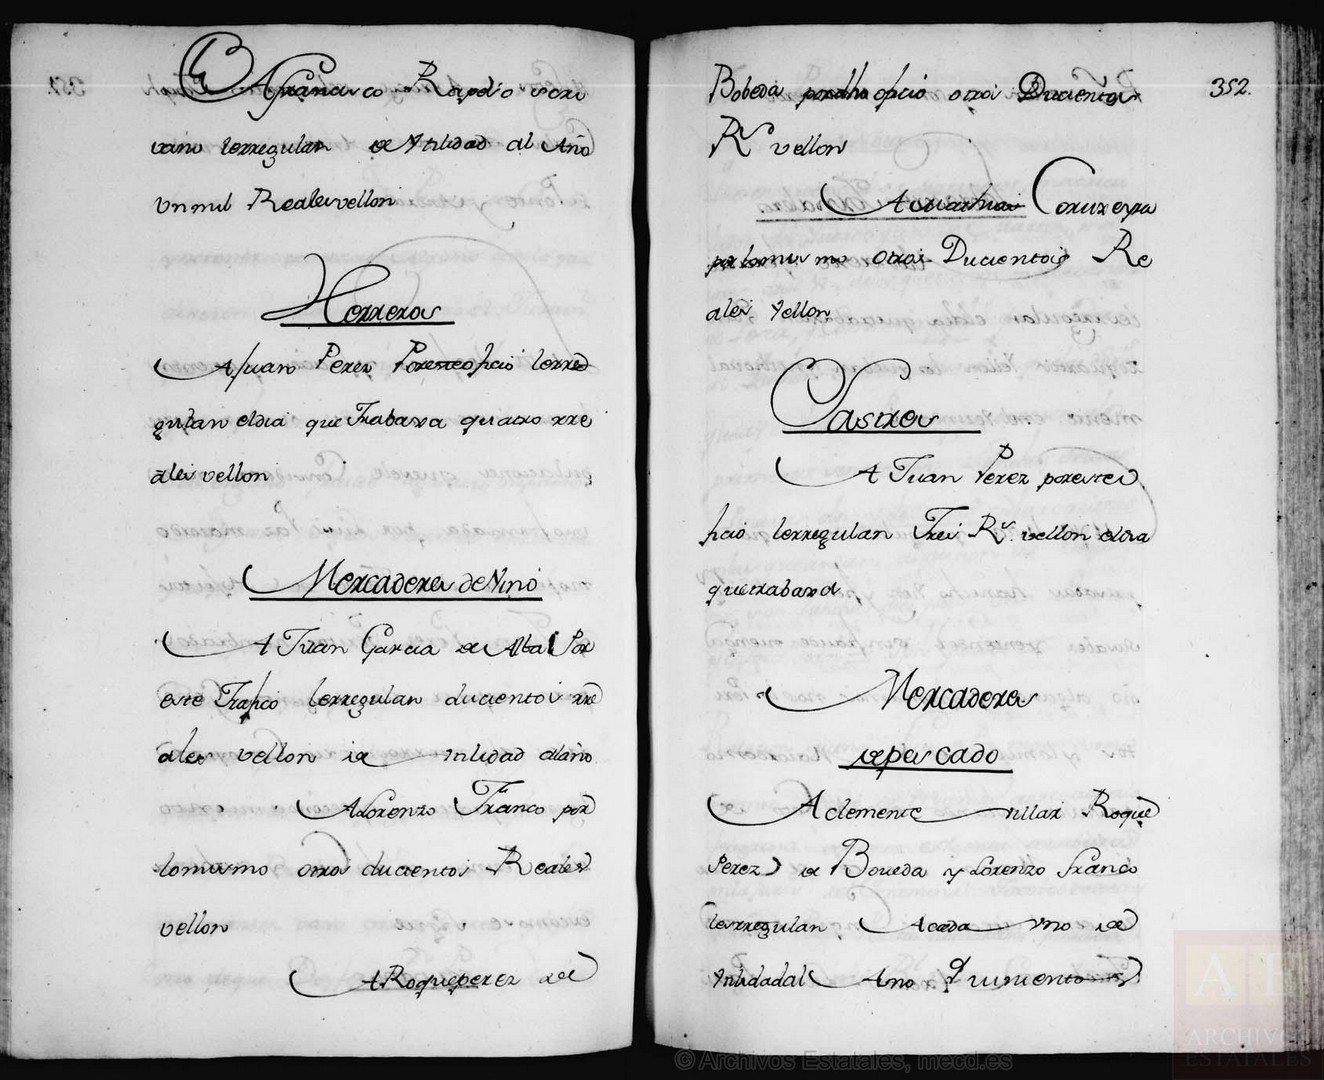 A francisco Rapelo escri
vano lerregulan de Vtilidad al Año
Un mil Reales vellon
Herreros
A Juan Perez Por este oficio lerre
gulan eldia que Trabaxa quatro rre
ales vellon
Mercaderes de Vino
A Juan Garcia de Alta Por
este Trafico lerregulan ducientos rre
ales vellon de utilidad al año
A Lorenzo Franco por
lo mismo otros ducientos Reales
vellon
A Roque perez de
352.
Bobeda por dho oficio otros Ducientos
Rs vellon
A
por lo mismo otros Ducientos Re
ales Vellon
Sastres
A Juan Perez por este o
ficio lerregulan Tres Rs. vellon eldia
que trabaxa
Mercaderes
de pescado
A clemente villar Roque
Perez de Boveda y Lorenzo franco
lesrregulan A cada vno de
Vtilidad al Ano Quinientos
ARCHIVOS
ESTATALES
© Archivos Estatales, mecd.es